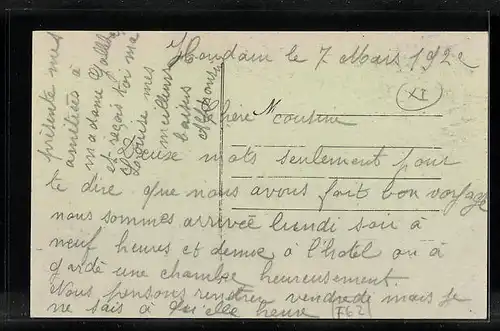 Houdain le 7 Mars 1922
XI
Chère cousine
Deux mots seulement pour
te dire que nous avons fait bon voyage
nous sommes arrivée lundi soir à
neuf heures et demie à l'hotel on à
gardé une chambre heureusement.
Nous pensons rentrer vendredi mais je
ne sais à qu'elle heure
762
présente mes
amitiées à
madame
et reçois toi ma
Louise mes
meilleurs
baisers
Alphonse